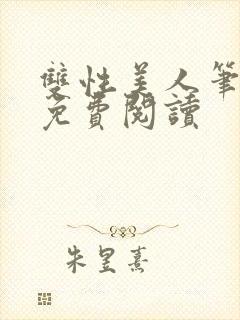 雙性美人筆
免費閱讀
朱星熹